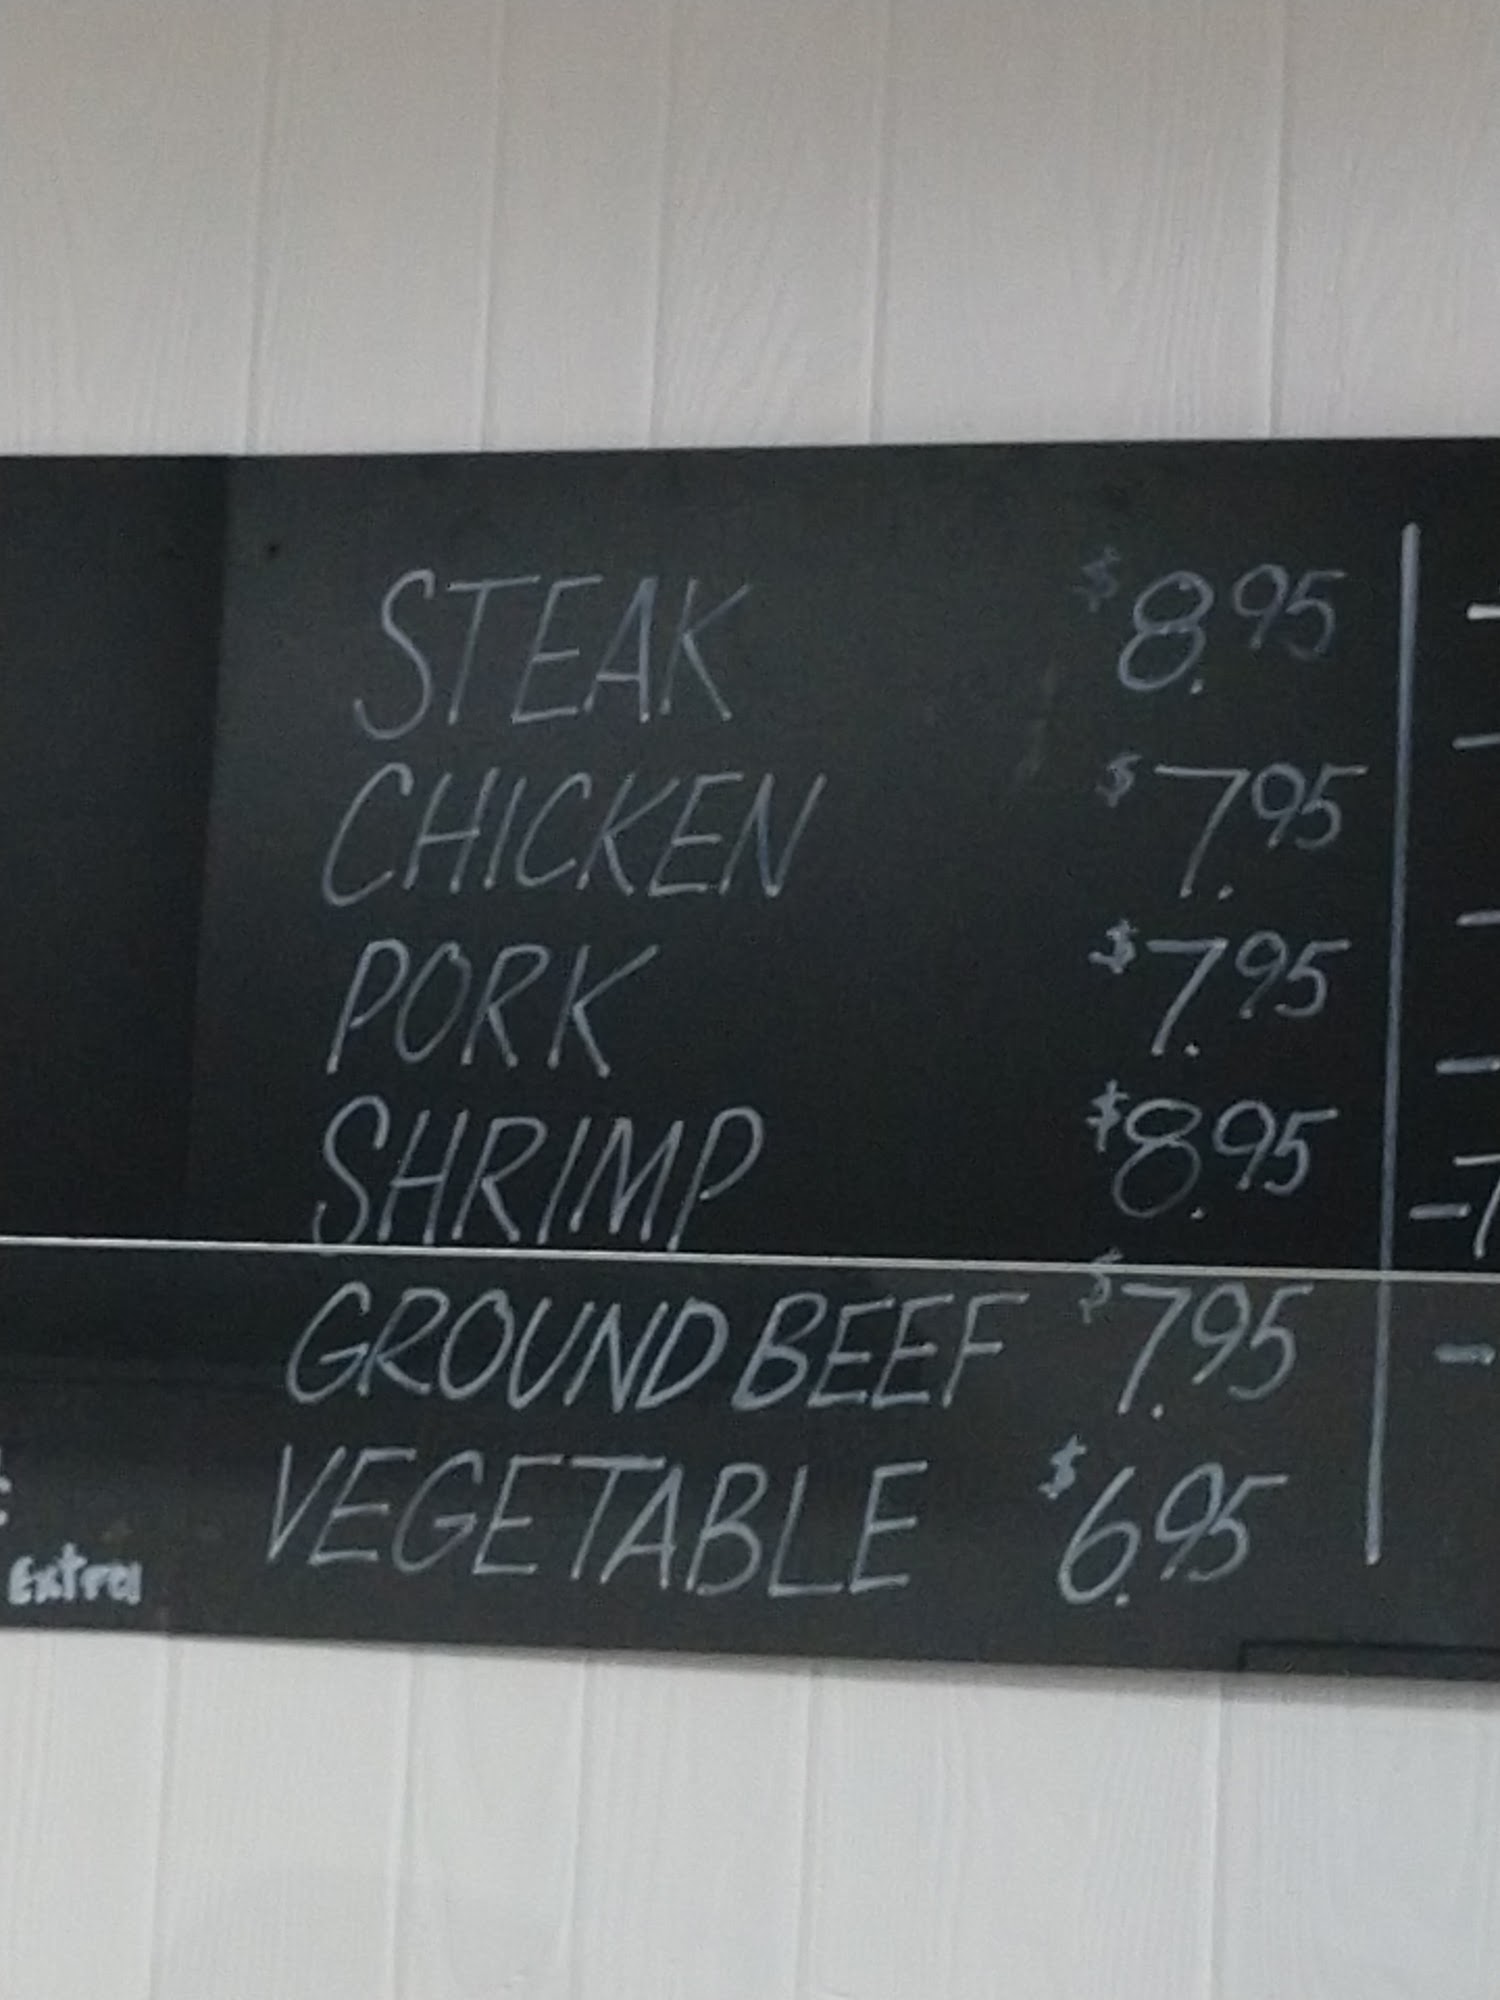 STEAK $8.95
CHICKEN $7.95
PORK $7.95
SHRIMP $8.95
GROUND BEEF $7.95
VEGETABLE $6.95
Extra